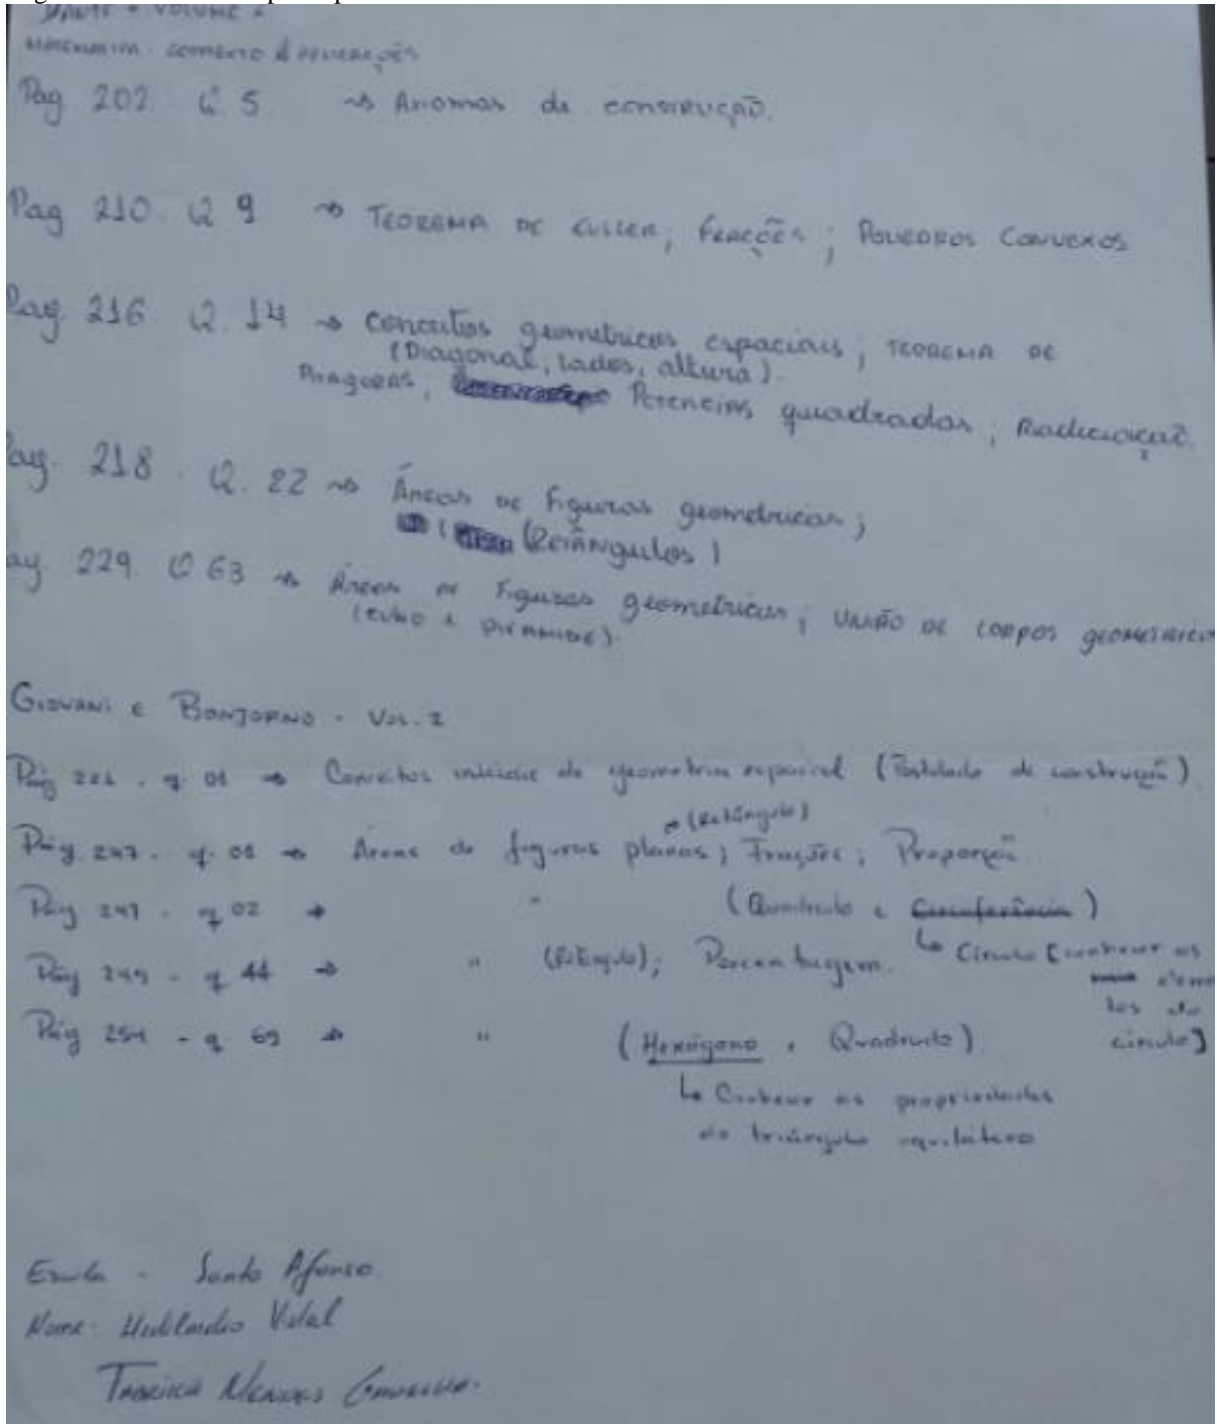 DANTE - VOLUME 2
MATEMATICA CONTEXTO & APLICAÇÕES
Pag 202 Q. 5 → Axiomas de construção.
Pag 210. Q 9 → TEOREMA DE EULER; FRAÇÕES; POLIEDROS CONVEXOS
Pag. 216. Q. 14 → Conceitos geometricos espaciais; TEOREMA DE
(Diagonal, lados, altura).
PITAGORAS, Potencias quadradas, Radiciação.
Pag. 218. Q. 22 → Áreas de Figuras geometricas;
(Retângulos)
Pag 229. Q 63 → Áreas de Figuras geometricas; UNIÃO DE CORPOS GEOMETRICOS
(CUBO E PIRAMIDE).
GIOVANI E BONJORNO - VOL. 2
Pág 221 - q. 01 → Conceitos iniciais de geometria espacial (Postulado de construção)
(Retângulo)
Pág. 247 - q. 01 → Áreas de figuras planas; Frações; Proporção
Pág 247 - q 02 → " (Quadrado e Circunferência)
Pág 249 - q 44 → " (Retângulo); Porcentagem. ↳ Círculo [conhecer os
elemen
tos do
Pág 254 - q 69 → " (Hexágono e Quadrado). círculo]
↳ Conhecer as propriedades
do triângulo equilátero
Escola - Santo Afonso.
Nome: Vidal